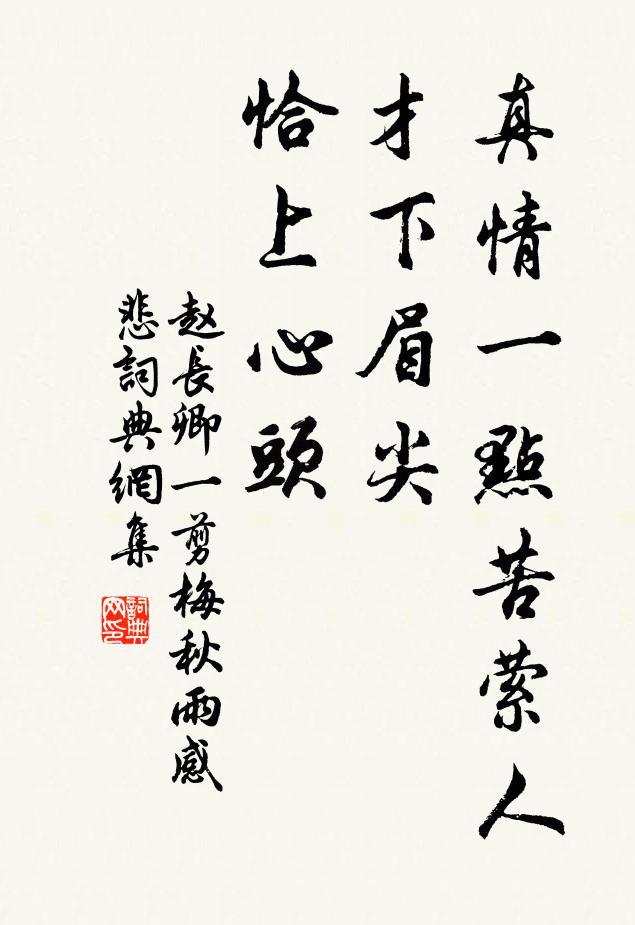 真情一點苦萦人
才下眉尖
恰上心頭
赵長卿一剪梅秋雨感
悲詞典網集
詞典
网印